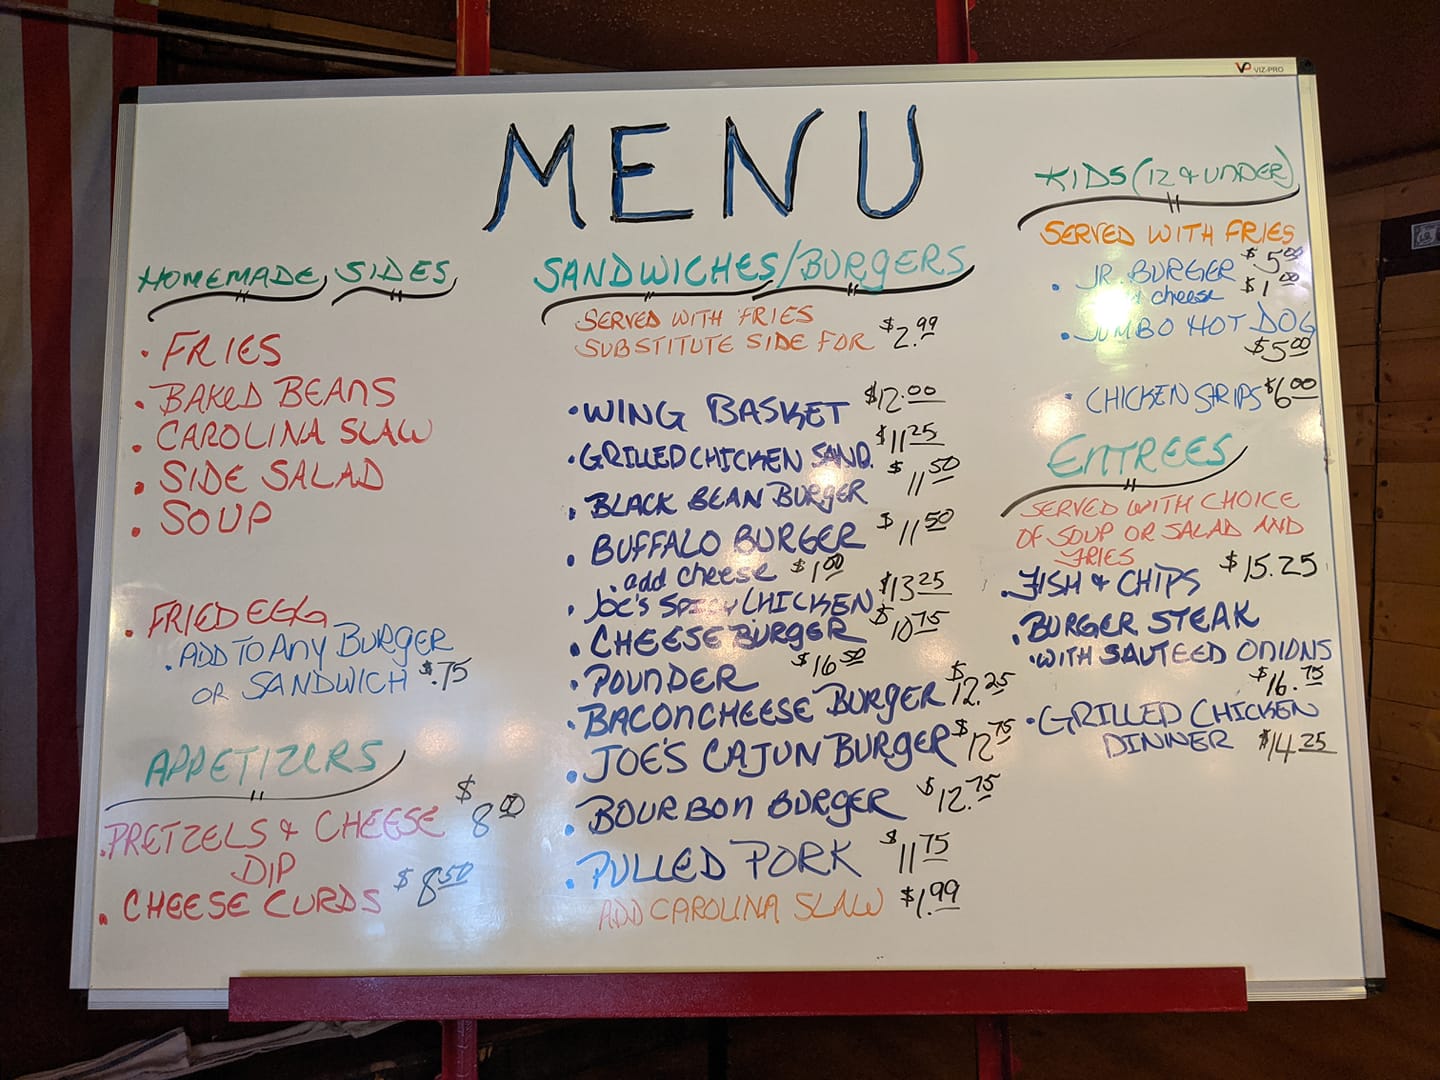 VIZ-PRO
MENU
HOMEMADE SIDES
• FRIES
• BAKED BEANS
• CAROLINA SLAW
• SIDE SALAD
• SOUP
• FRIED EGG
• ADD TO ANY BURGER
OR SANDWICH $.75
APPETIZERS
• PRETZELS & CHEESE $8.00
DIP
• CHEESE CURDS $8.50
SANDWICHES/BURGERS
SERVED WITH FRIES
SUBSTITUTE SIDE FOR $2.99
• WING BASKET $12.00
• GRILLED CHICKEN SAND. $11.25
• BLACK BEAN BURGER $11.50
• BUFFALO BURGER $11.50
• add cheese $1.00
• JOE'S SPICY CHICKEN $13.25
• CHEESE BURGER $10.75
• POUNDER $16.50
• BACONCHEESE BURGER $12.25
• JOE'S CAJUN BURGER $12.75
• BOURBON BURGER $12.75
• PULLED PORK $11.75
ADD CAROLINA SLAW $1.99
KIDS (12 & UNDER)
SERVED WITH FRIES
• JR. BURGER $5.00
cheese $1.00
• JUMBO HOT DOG
$5.00
• CHICKEN STRIPS $6.00
ENTREES
SERVED WITH CHOICE
OF SOUP OR SALAD AND
FRIES
• FISH & CHIPS $15.25
• BURGER STEAK
• WITH SAUTEED ONIONS
$16.75
• GRILLED CHICKEN
DINNER $14.25